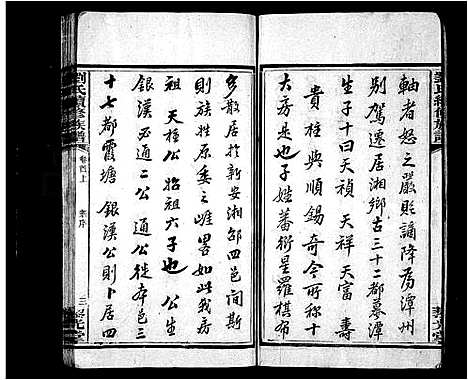 軸者怒之嚴貶謫降為潭州
別駕遷居湘鄉古三十二都墓潭
生子十曰天禎 天祥 天富 壽
貴 柱 與 順 錫 奇 今所称十
大房是也子姓蕃衍星羅棋布
多散居於新安湘邵四邑間斯
則族姓原委之崖畧如此我房
祖 天柱公 始祖六子也 公生
銀漢 必通二公 通公徙本邑三
十七都霞塘 銀漢公則卜居四
劉氏續修族譜
卷首上
三